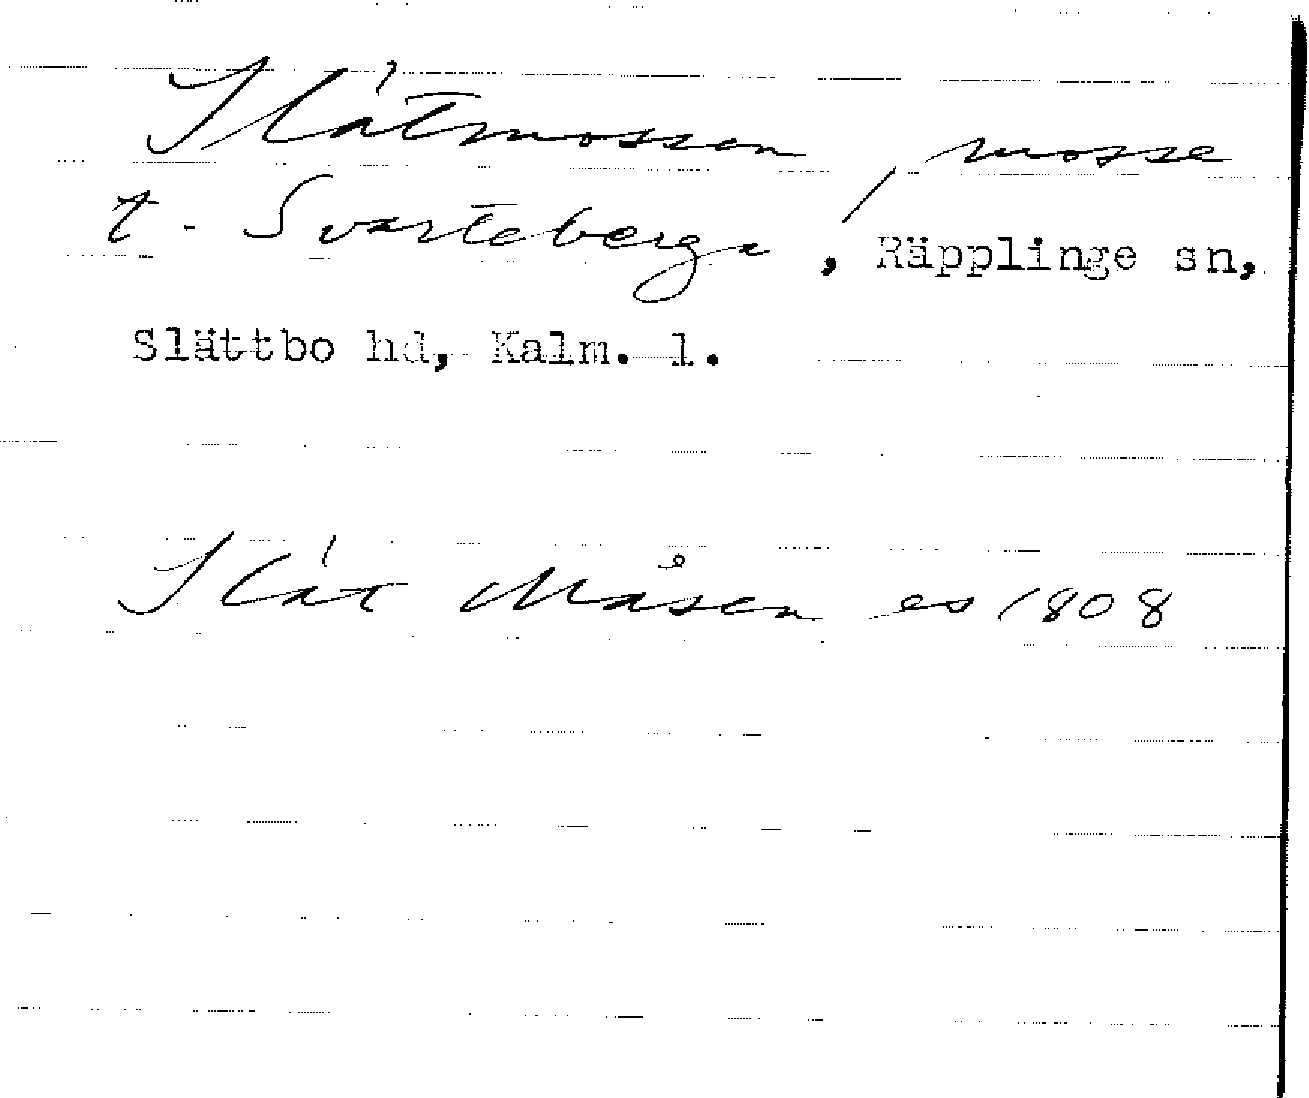 Slåtmossen, mosse
t. Svarteberga, Räpplinge sn,
Slättbo hd, Kalm. l.
Slåt Måsen es 1808